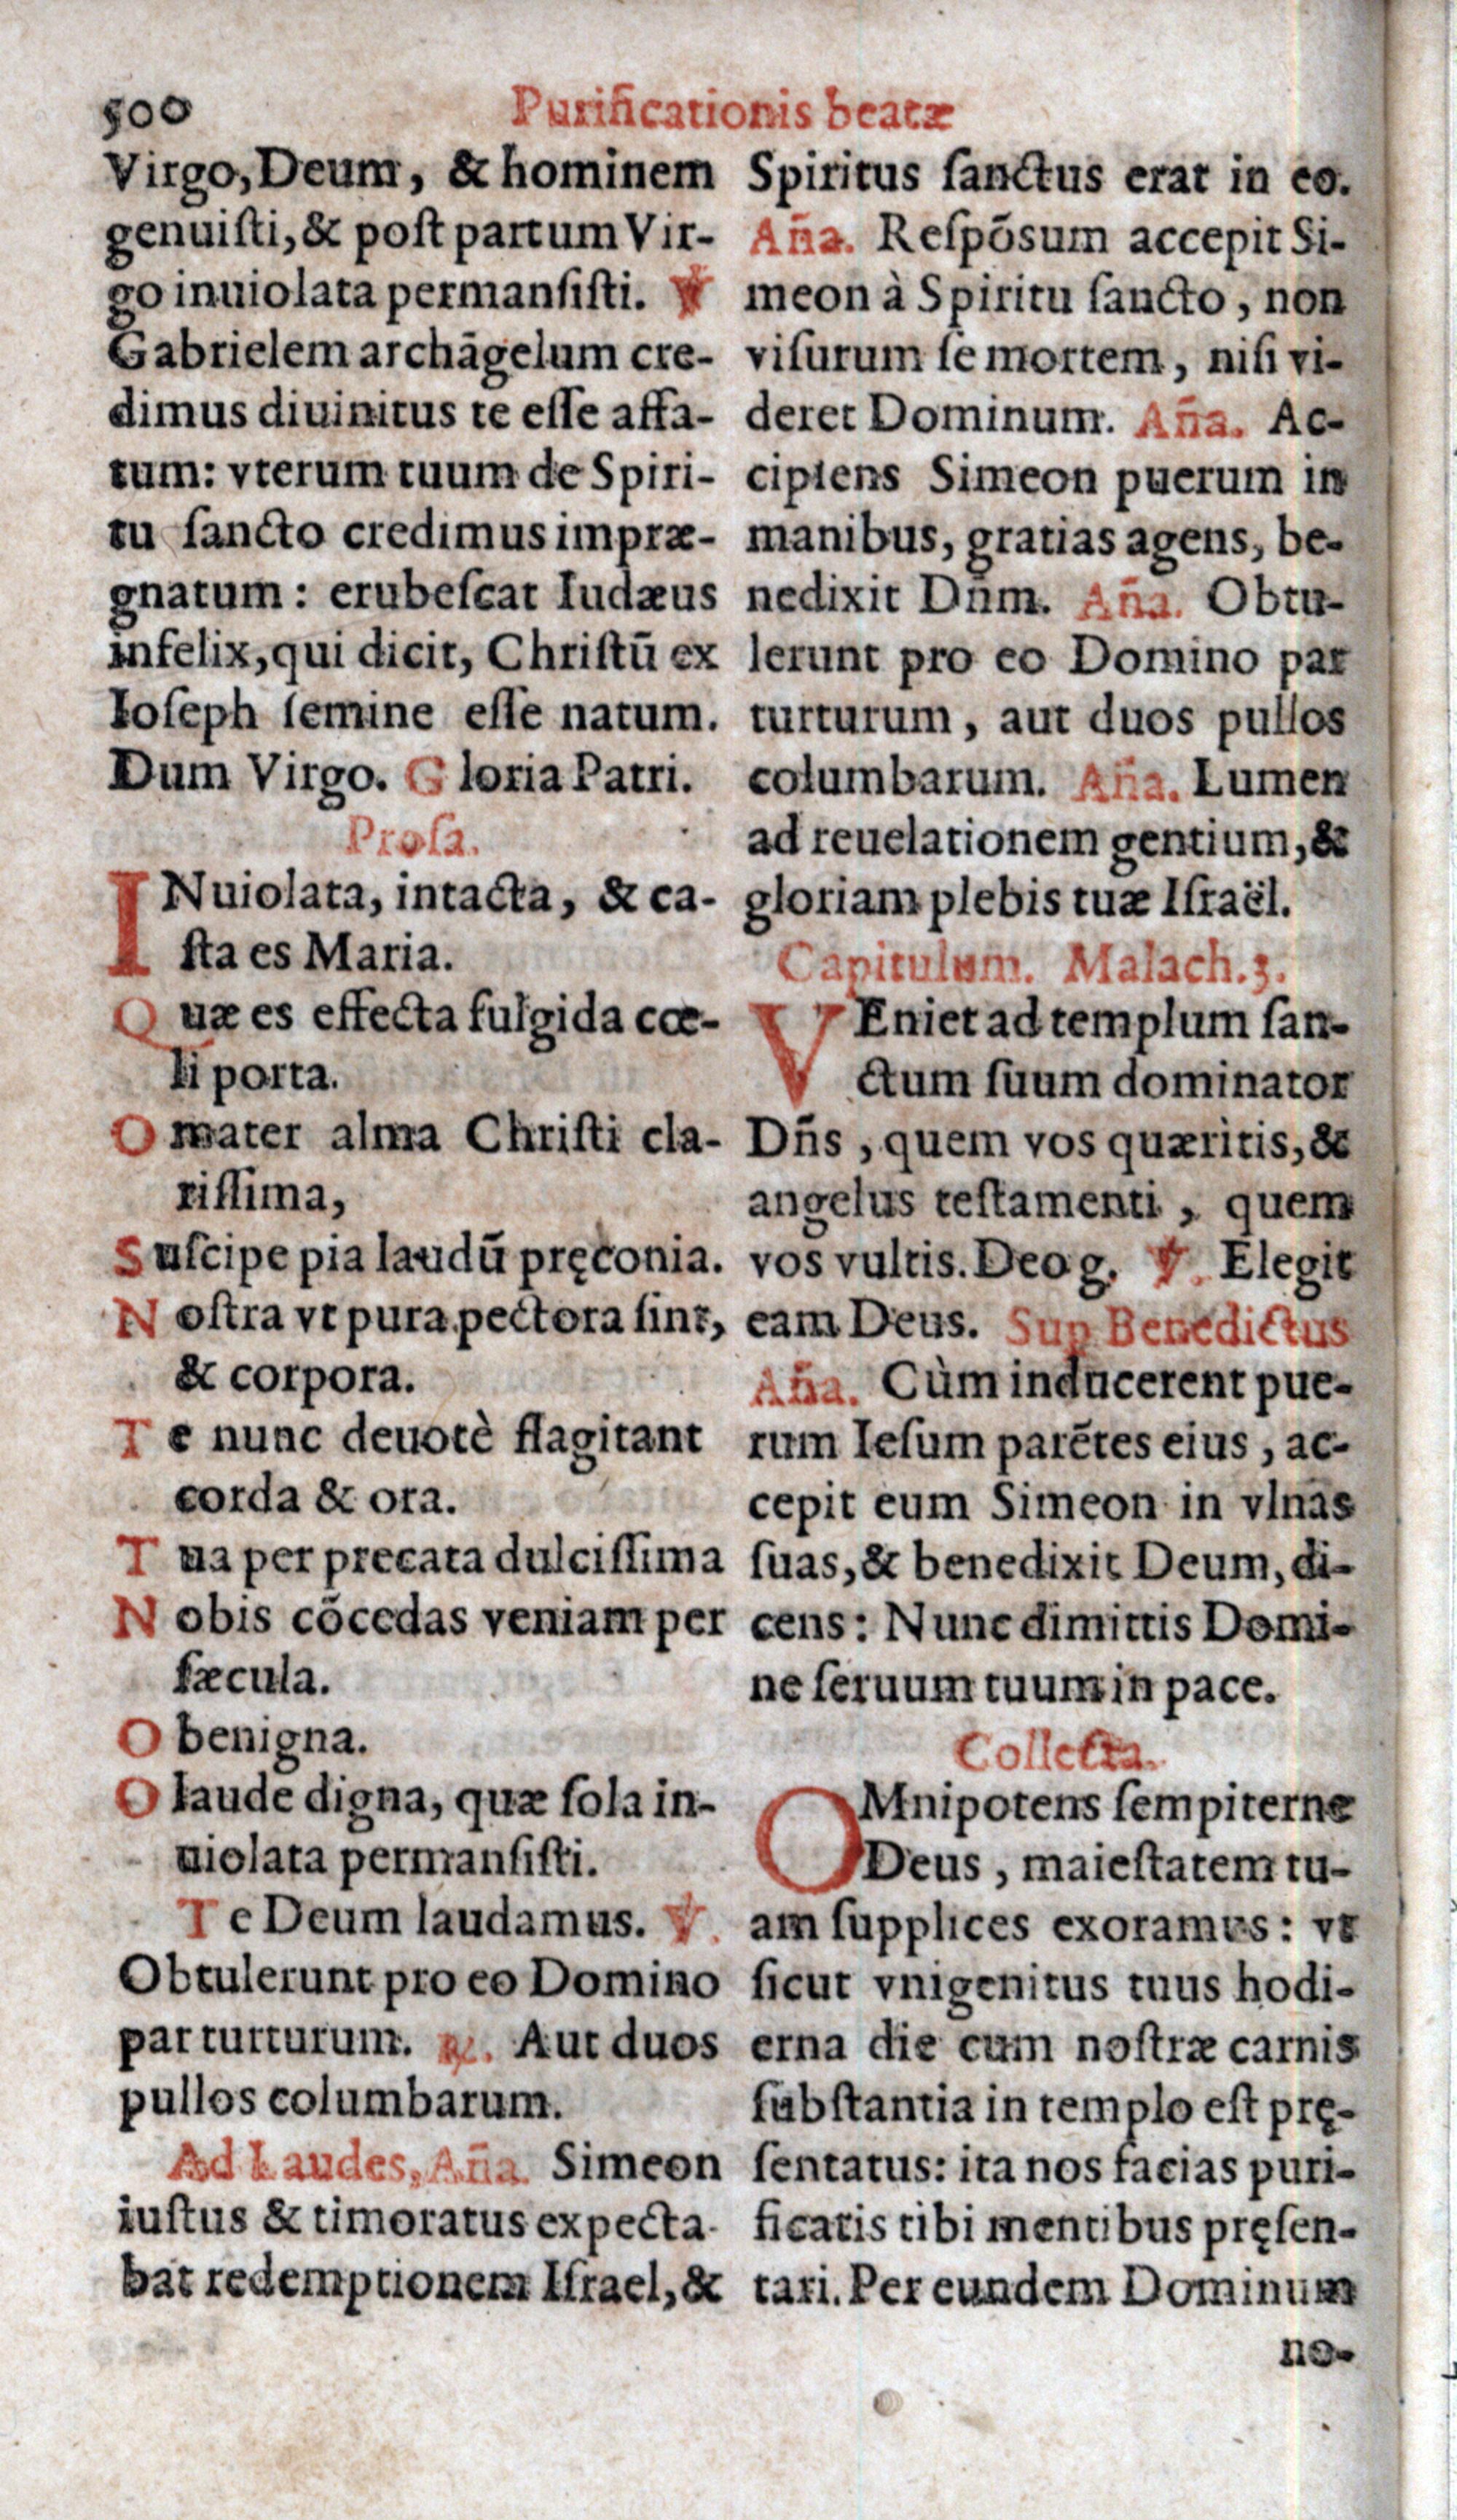 500
Purificationis beatæ
Virgo, Deum, & hominem
genuiſti, & poſt partum Vir-
go inuiolata permanſiſti. ℣
Gabrielem archãgelum cre-
dimus diuinitus te eſſe affa-
tum: vterum tuum de Spiri-
tu ſancto credimus impræ-
gnatum: erubeſcat Iudæus
infelix, qui dicit, Chriſtũ ex
Ioſeph ſemine eſſe natum.
Dum Virgo. Gloria Patri.
Proſa.
INuiolata, intacta, & ca-
ſta es Maria.
Quæ es effecta fulgida cœ-
li porta.
O mater alma Chriſti cla-
riſſima,
Suſcipe pia laudũ pręconia.
Noſtra vt pura pectora ſint,
& corpora.
Te nunc deuotè flagitant
corda & ora.
Tua per precata dulciſſima
Nobis cõcedas veniam per
ſæcula.
O benigna.
O laude digna, quæ ſola in-
uiolata permanſiſti.
Te Deum laudamus. ℣.
Obtulerunt pro eo Domino
par turturum. ℟. Aut duos
pullos columbarum.
Ad Laudes, Aña. Simeon
iuſtus & timoratus expecta-
bat redemptionem Iſrael, &
Spiritus ſanctus erat in eo.
Aña. Reſpõſum accepit Si-
meon à Spiritu ſancto, non
viſurum ſe mortem, niſi vi-
deret Dominum. Aña. Ac-
cipiens Simeon puerum in
manibus, gratias agens, be-
nedixit Dñm. Aña. Obtu-
lerunt pro eo Domino par
turturum, aut duos pullos
columbarum. Aña. Lumen
ad reuelationem gentium, &
gloriam plebis tuæ Iſraël.
Capitulum. Malach. 3.
VEniet ad templum ſan-
ctum ſuum dominator
Dñs, quem vos quæritis, &
angelus teſtamenti, quem
vos vultis. Deo g. ℣. Elegit
eam Deus. Sup Benedictus
Aña. Cùm inducerent pue-
rum Ieſum parẽtes eius, ac-
cepit eum Simeon in vlnas
ſuas, & benedixit Deum, di-
cens: Nunc dimittis Domi-
ne ſeruum tuum in pace.
Collecta.
OMnipotens ſempiterne
Deus, maieſtatem tu-
am ſupplices exoramus: vt
ſicut vnigenitus tuus hodi-
erna die cum noſtræ carnis
ſubſtantia in templo eſt prę-
ſentatus: ita nos facias puri-
ficatis tibi mentibus pręſen-
tari. Per eundem Dominum
no-